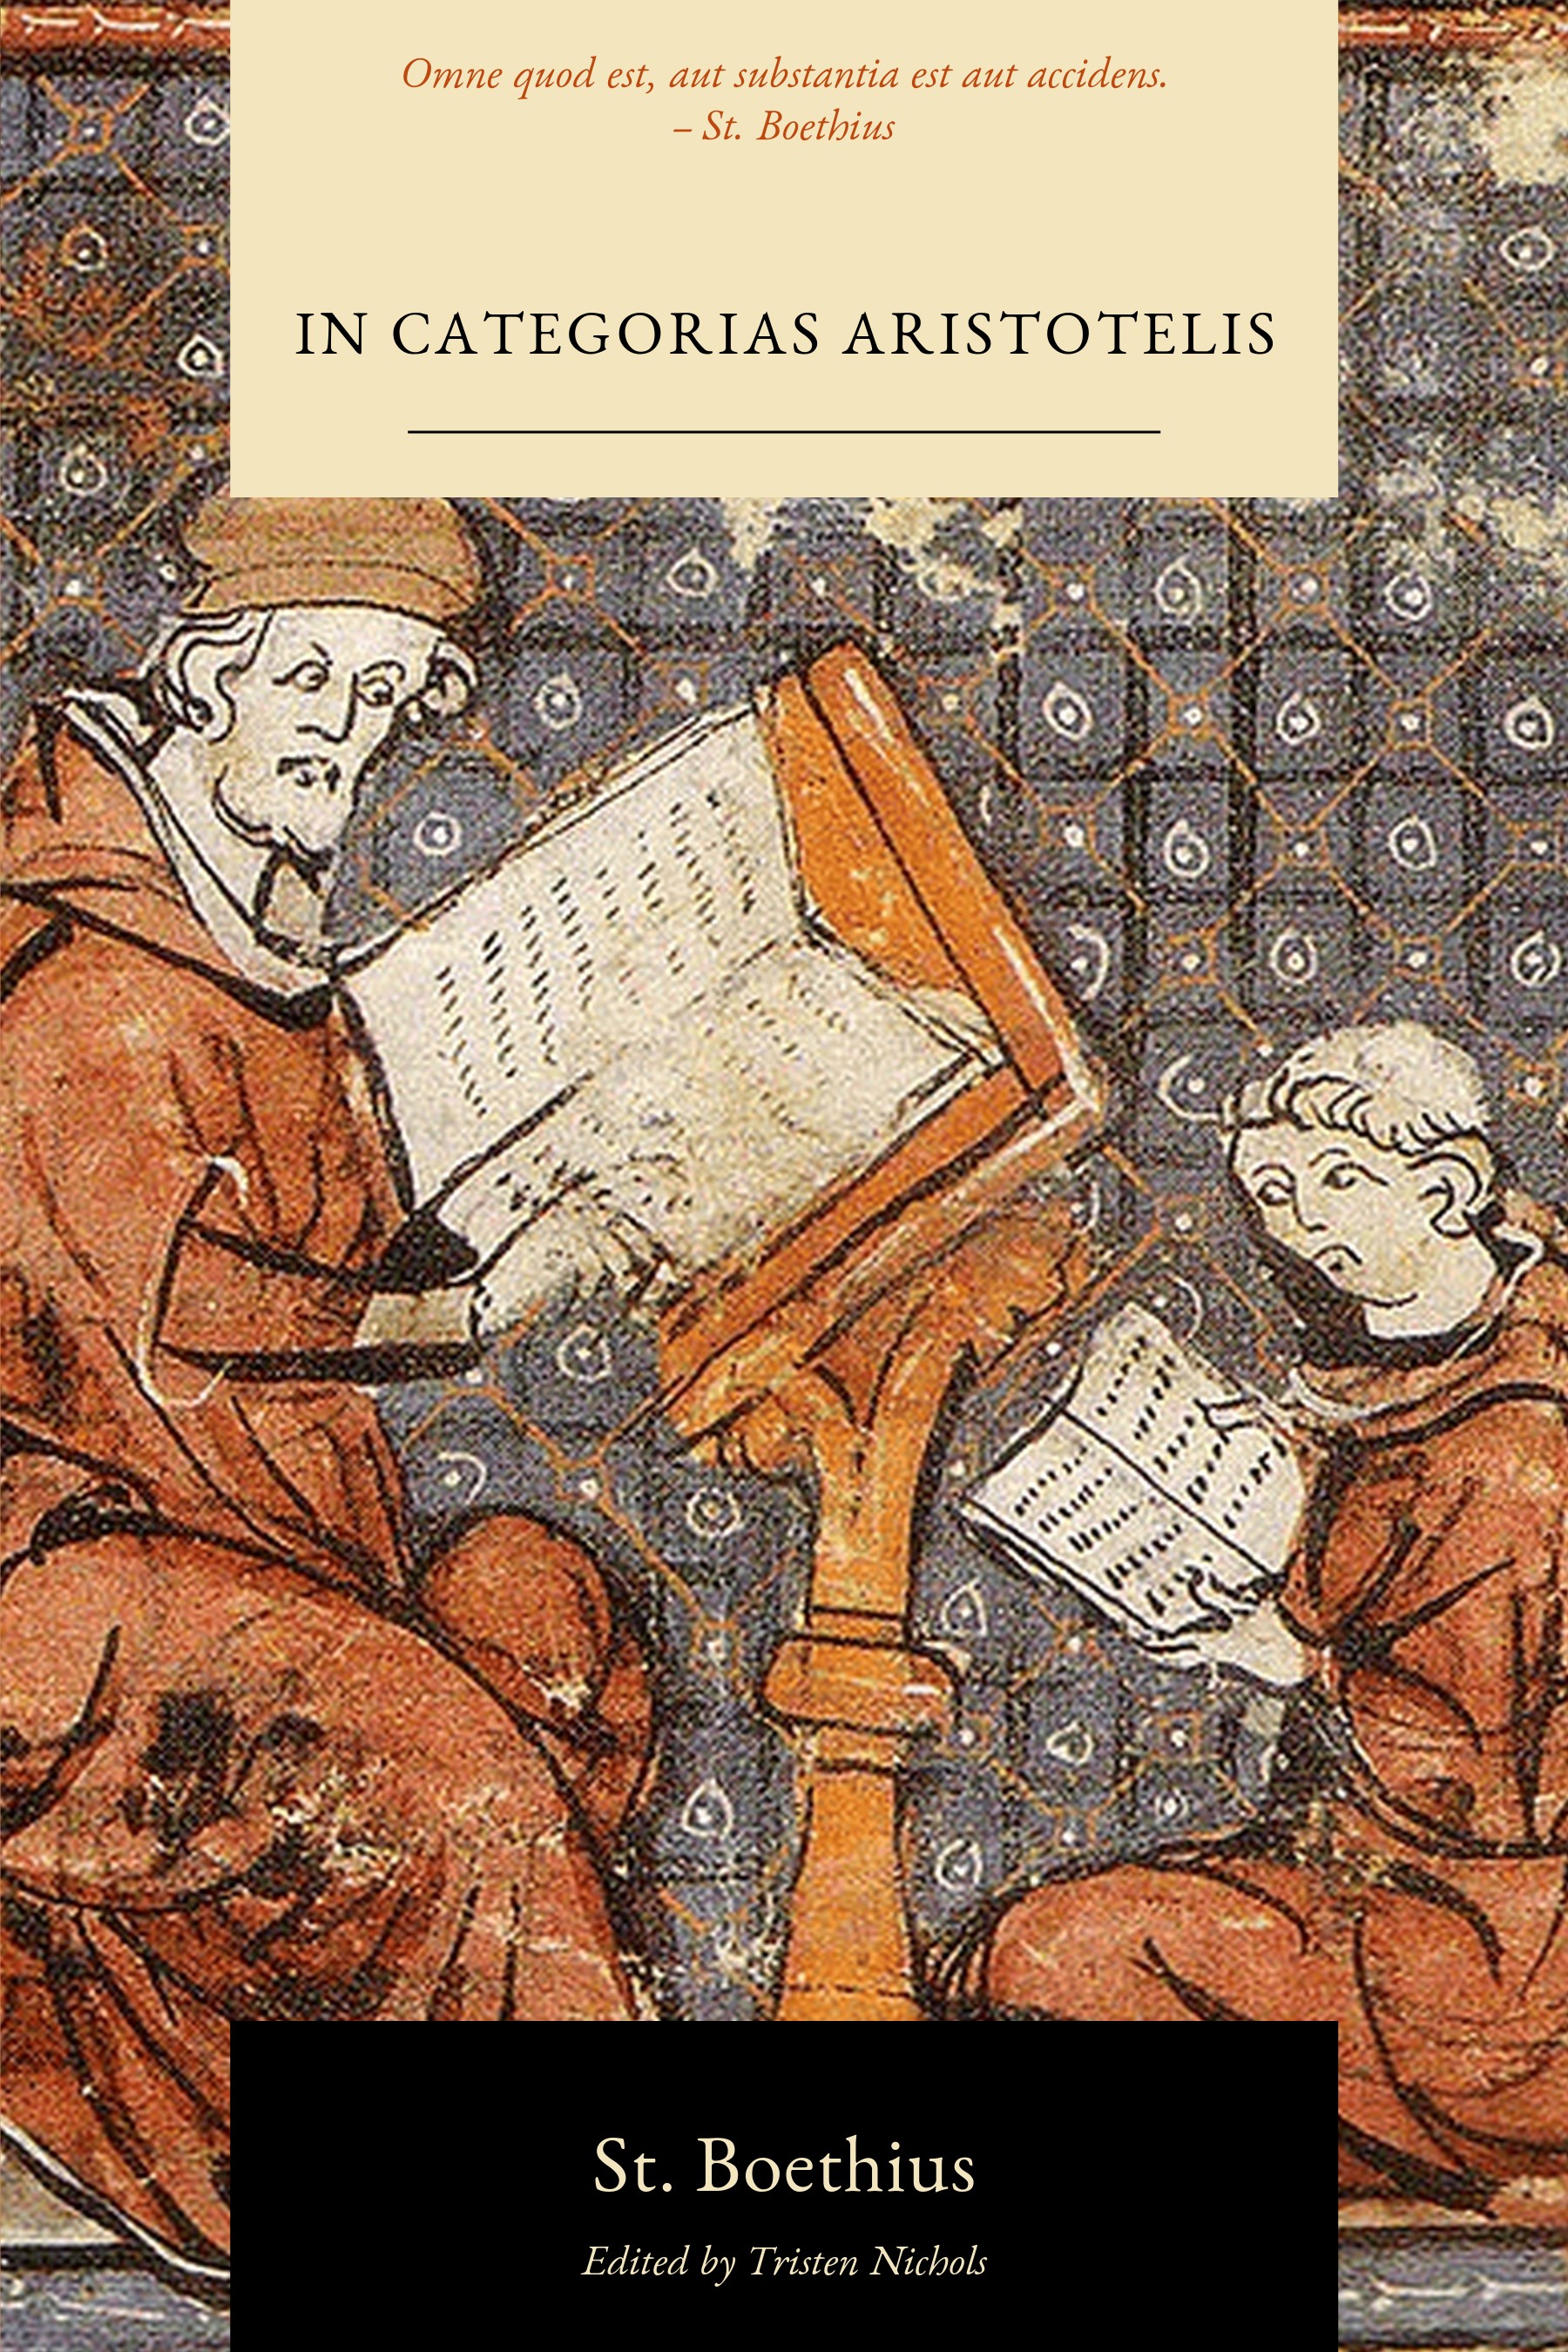 Omne quod est, aut substantia est aut accidens.
– St. Boethius
IN CATEGORIAS ARISTOTELIS
St. Boethius
Edited by Tristen Nichols